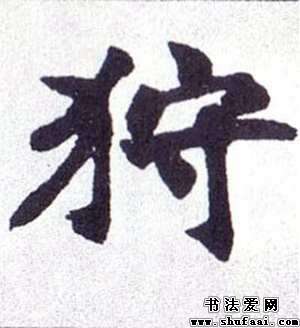 狩
书法爱网
www.shufaai.com